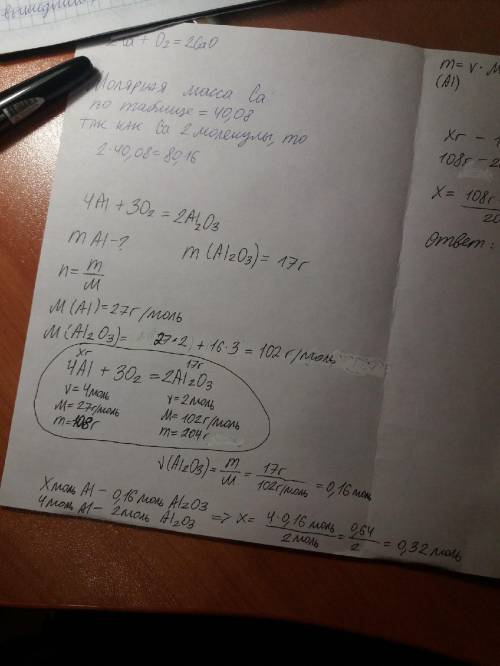 2Ca + O₂ = 2CaO
Молярная масса Ca
по таблице = 40,08
так как Ca 2 молекулы, то
2·40,08 = 80,16
4Al + 3O₂ = 2Al₂O₃
m Al - ?
m (Al₂O₃) = 17г
n = m/M
M (Al) = 27г/моль
M (Al₂O₃) = 27·2 + 16·3 = 102г/моль
xг
17г
4Al + 3O₂ = 2Al₂O₃
ν = 4моль
ν = 2моль
M = 27г/моль
M = 102г/моль
m = 108г
m = 204г
ν(Al₂O₃) = m/M = 17г/102г/моль = 0,16 моль
X моль Al - 0,16 моль Al₂O₃
4моль Al - 2моль Al₂O₃ => X = 4·0,16 моль/2моль = 0,64/2 = 0,32 моль
m = ν · M
(Al)
Xг -
108г - 
X = 108г
Ответ: